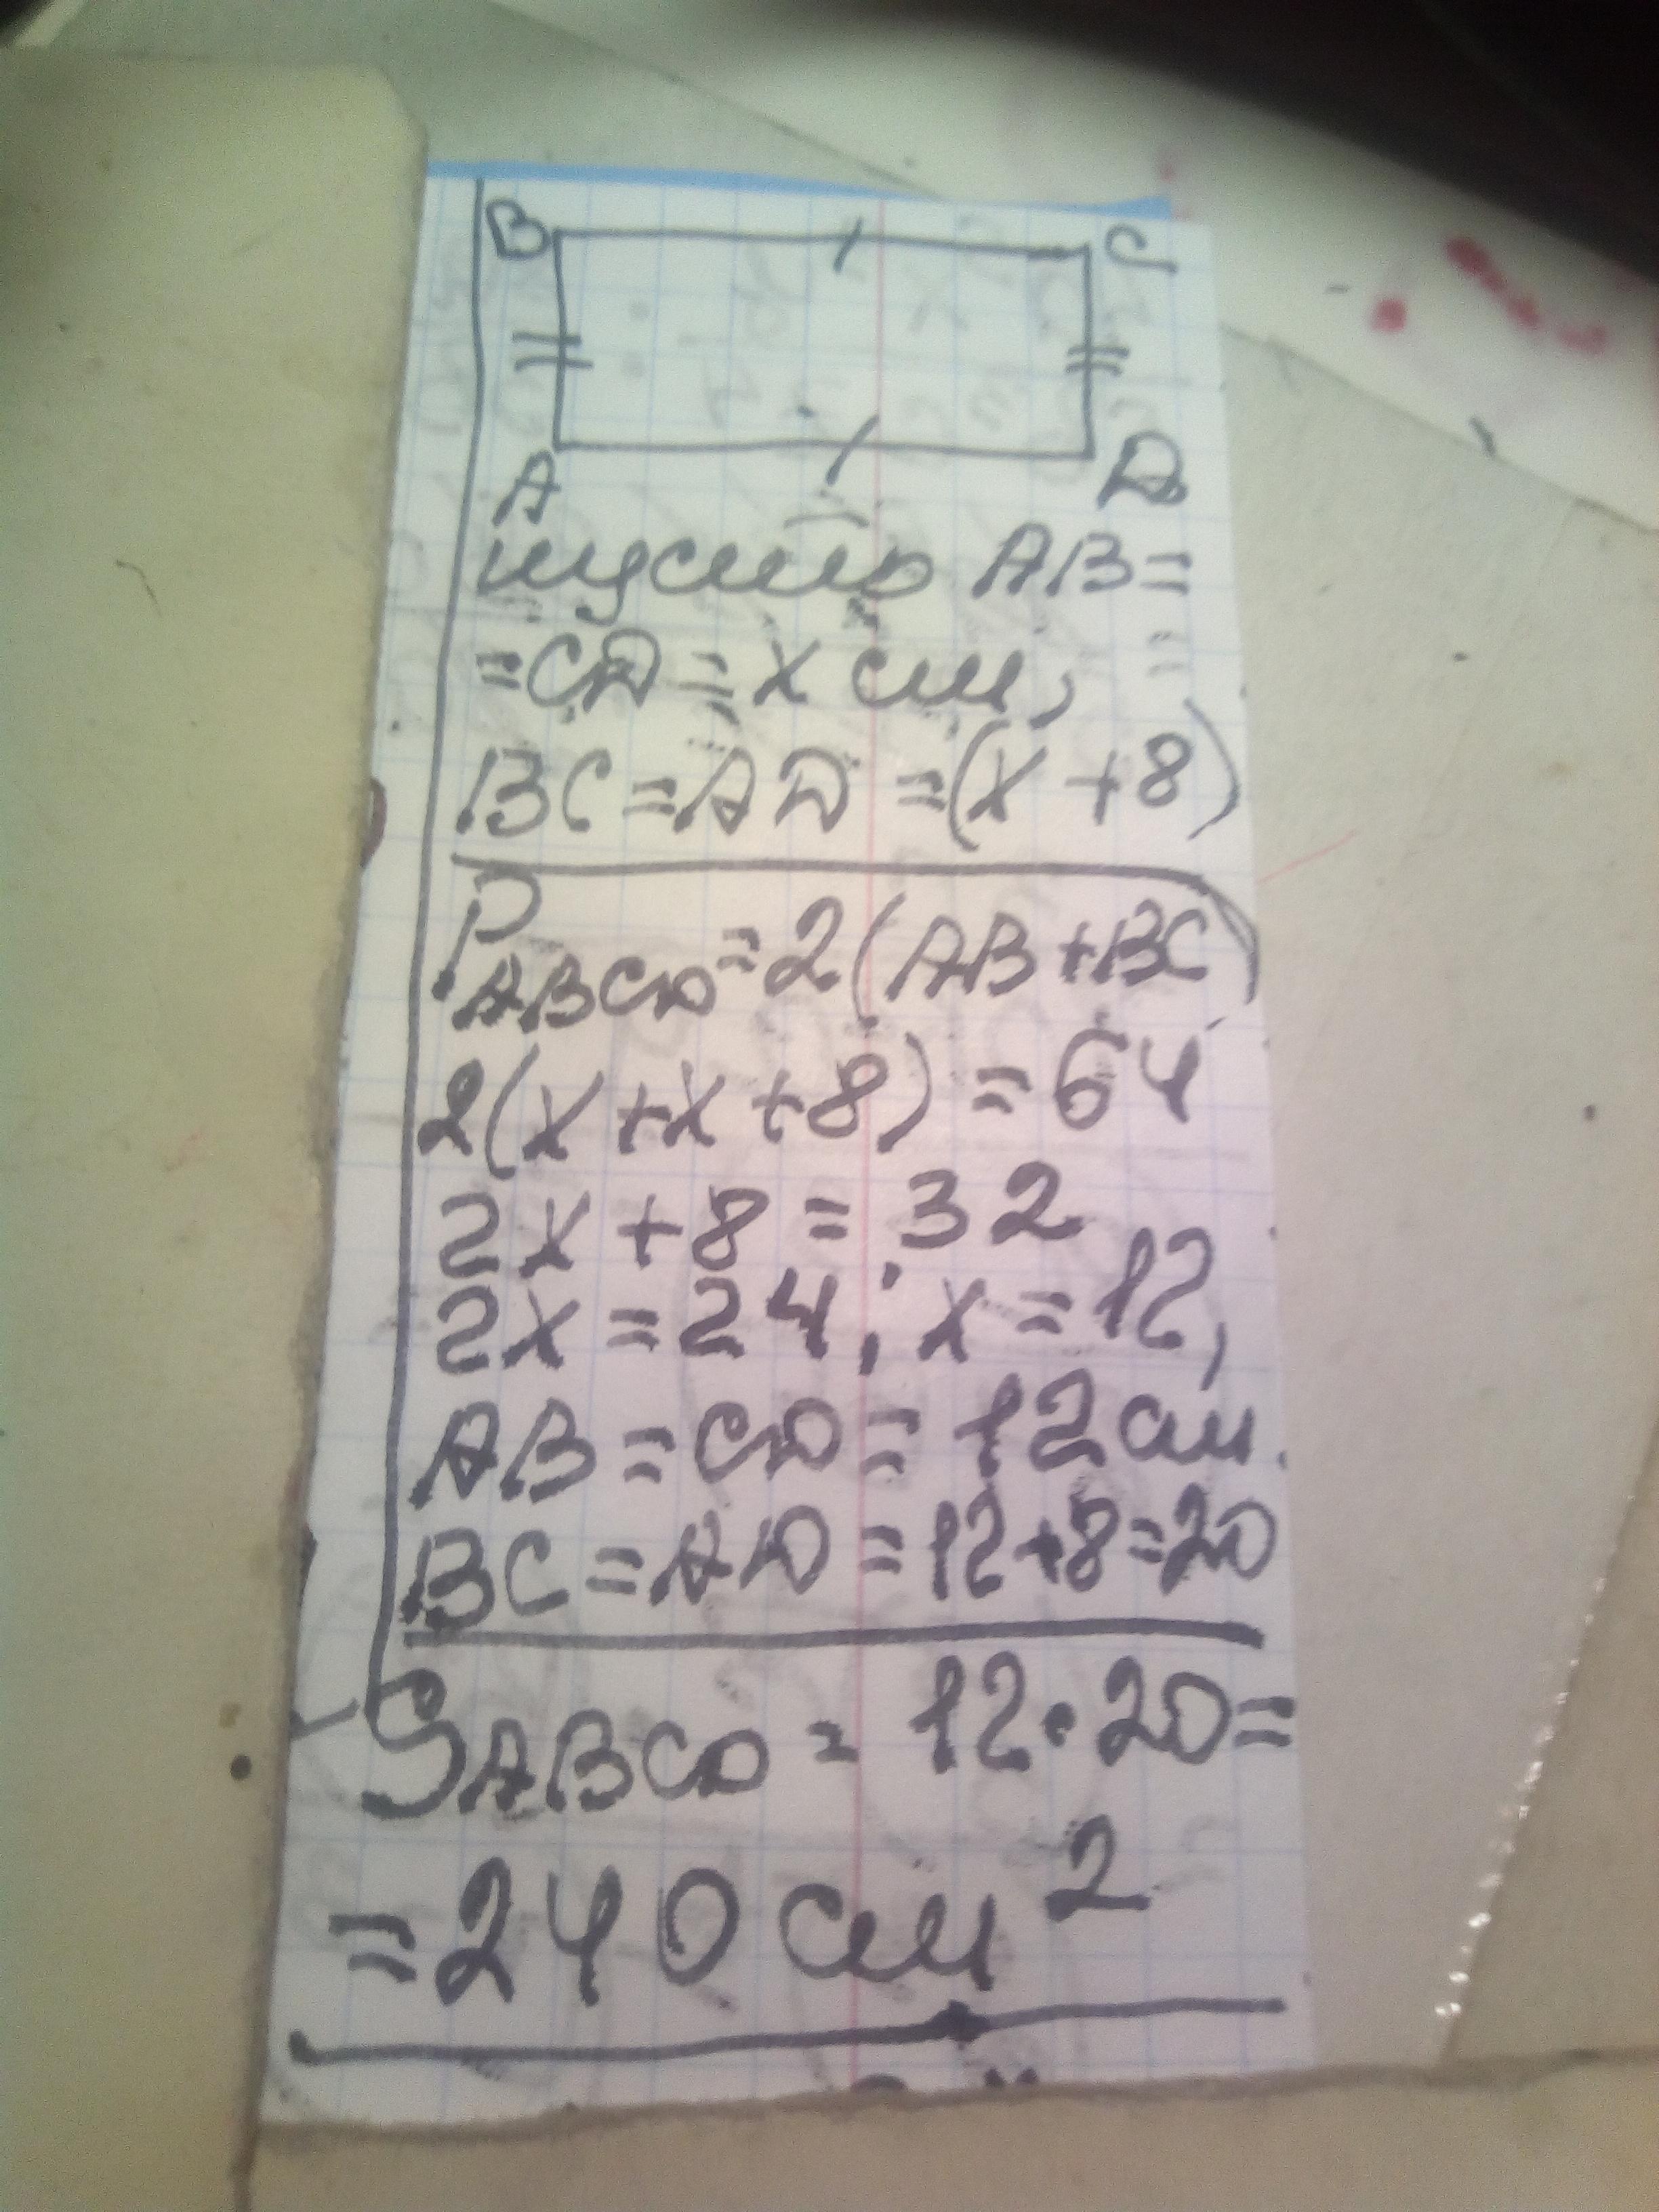 B C
A D
пусть AB=
=CD=x см,
BC=AD=(x+8)
P ABCD=2(AB+BC)
2(x+x+8)=64
2x+8=32
2x=24; x=12,
AB=CD=12 см.
BC=AD=12+8=20
S ABCD=12·20=
=240 см²